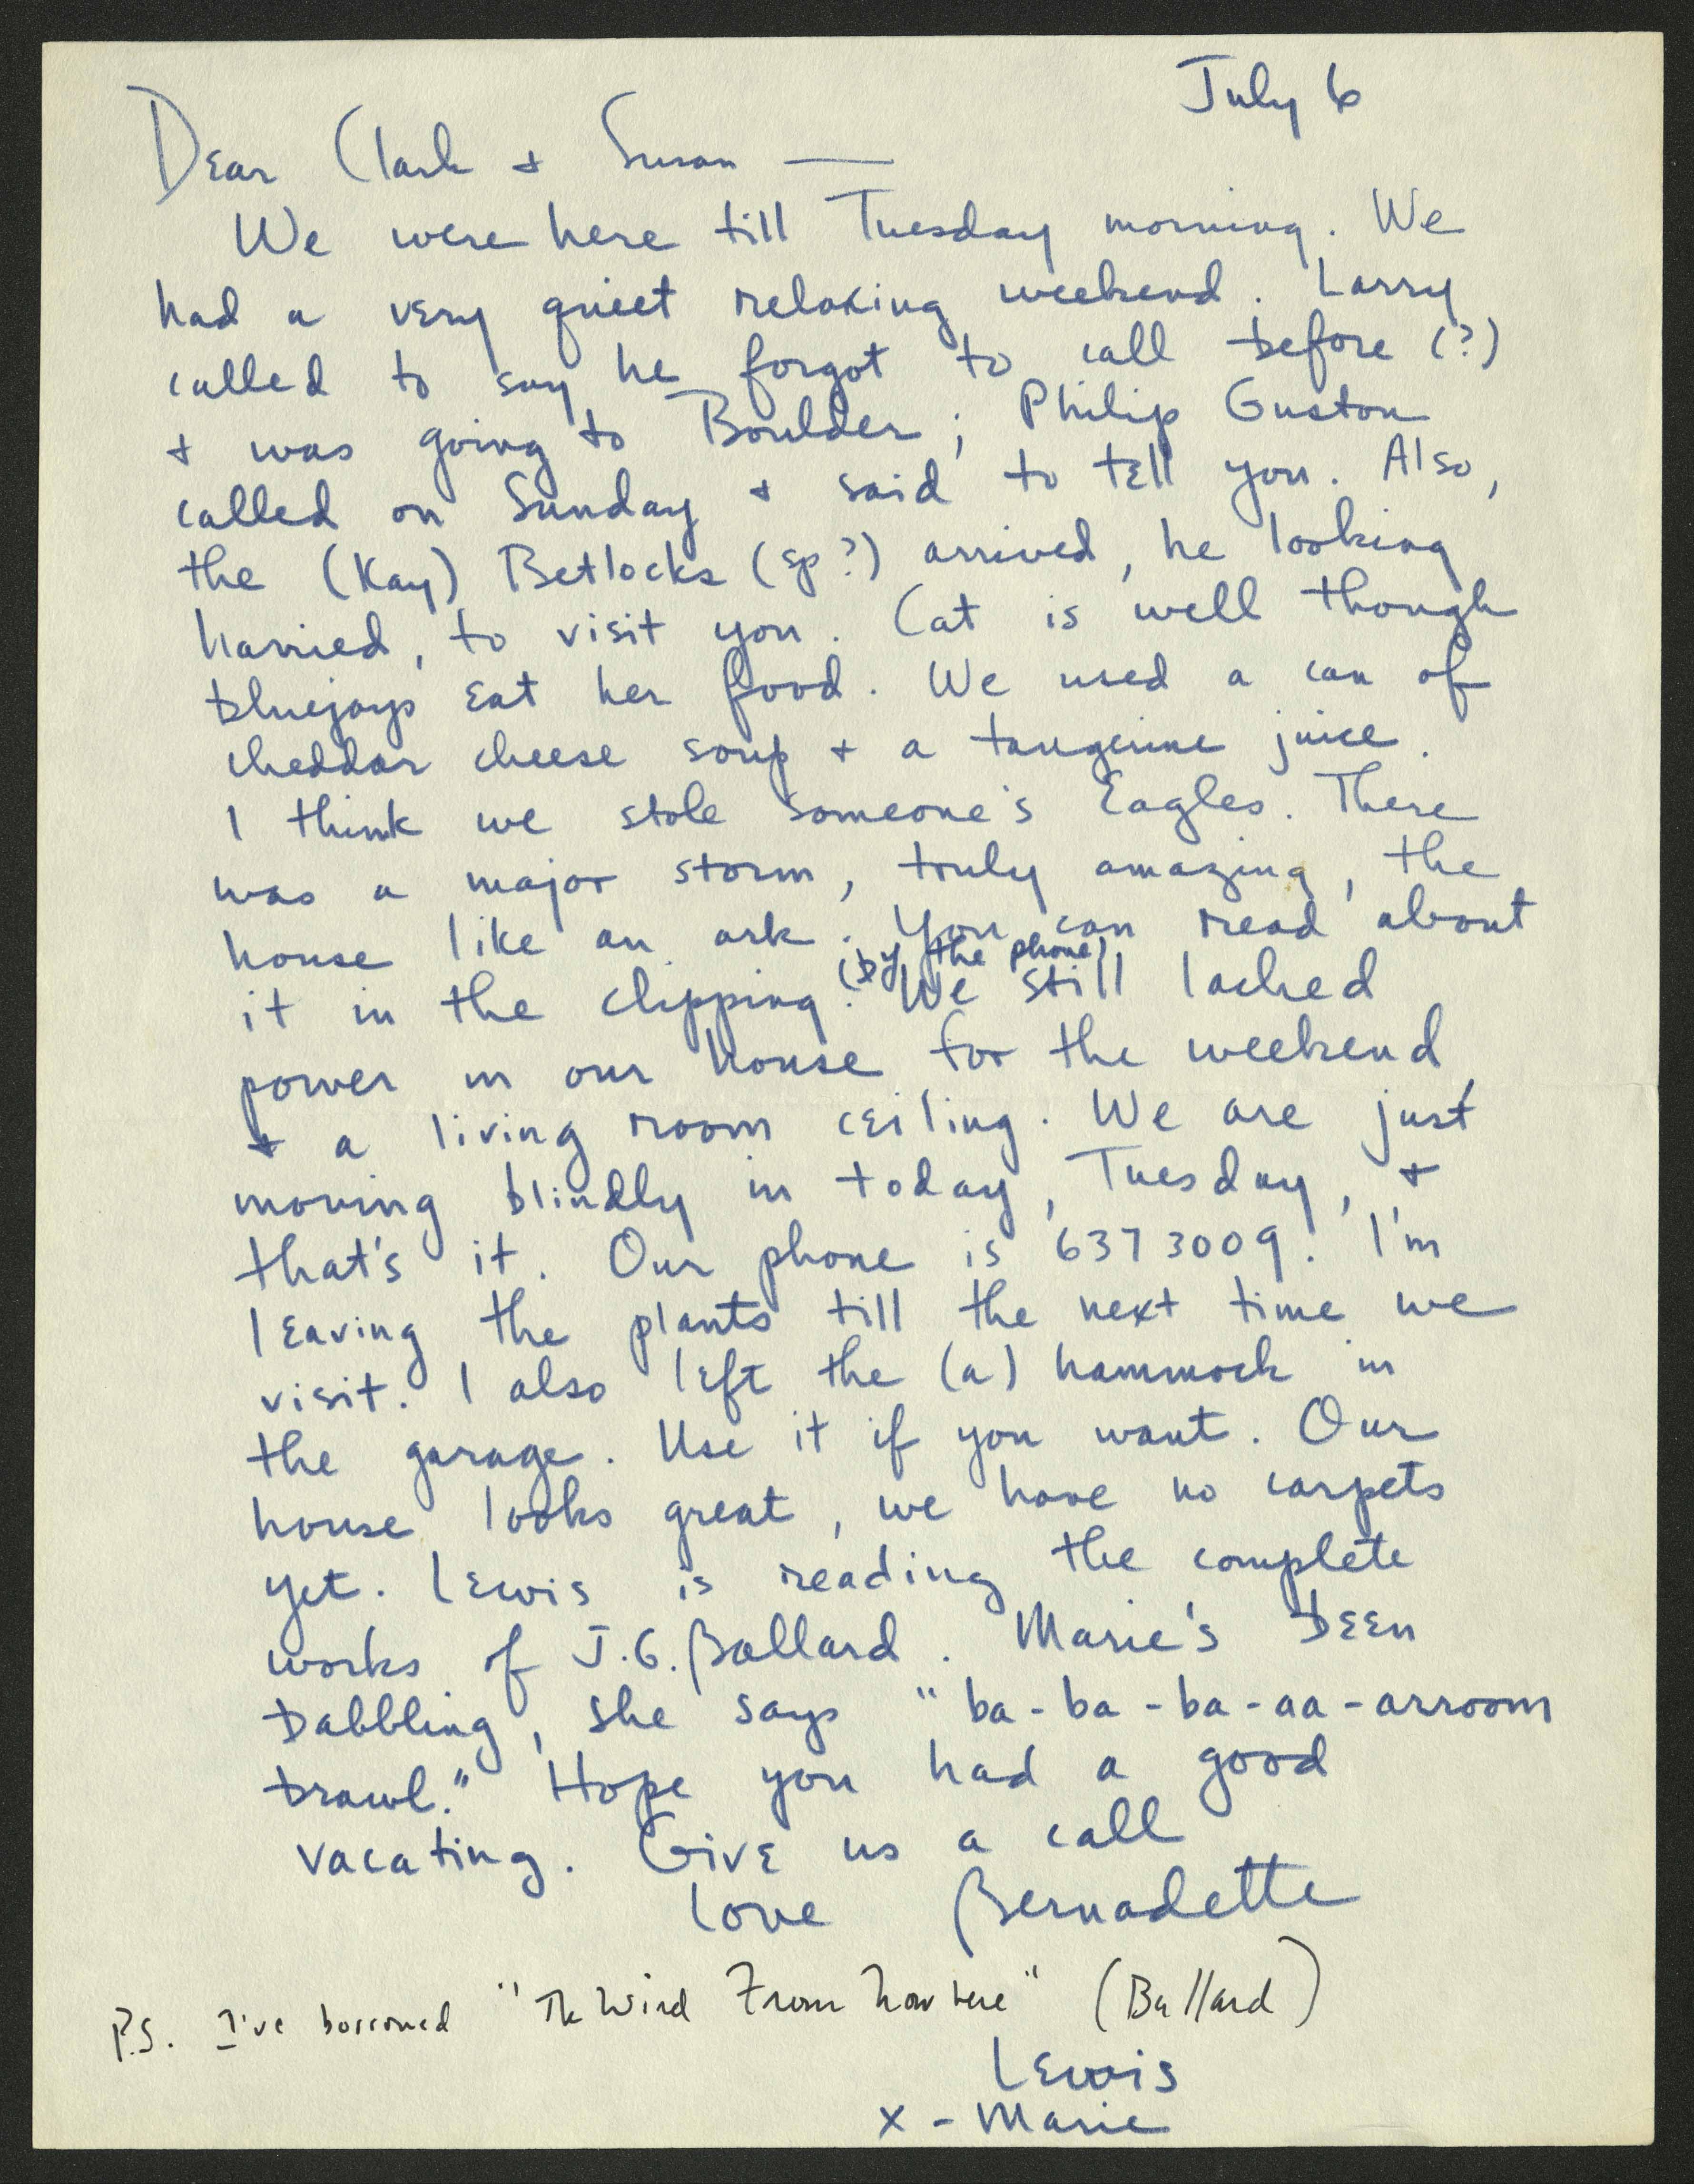 July 6
Dear Clark + Susan —
We were here till Tuesday morning. We
had a very quiet relaxing weekend. Larry
called to say he forgot to call before (?)
+ was going to Boulder; Philip Guston
called on Sunday + said to tell you. Also,
the (Kay) Betlocks (sp?) arrived, he looking
harried, to visit you. Cat is well though
bluejays eat her food. We used a can of
cheddar cheese soup + a tangerine juice.
I think we stole someone's Eagles. There
was a major storm, truly amazing, the
house like an ark. You can read about
(by the phone)
it in the clipping. We still lacked
power in our house for the weekend
+ a living room ceiling. We are just
moving blindly in today, Tuesday, +
that's it. Our phone is 637 3009. I'm
leaving the plants till the next time we
visit. I also left the (a) hammock in
the garage. Use it if you want. Our
house looks great, we have no carpets
yet. Lewis is reading the complete
works of J.G. Ballard. Marie's been
babbling, she says "ba-ba-ba-aa-arroom
brawl." Hope you had a good
vacating. Give us a call
Love Bernadette
P.S. I've borrowed "The Wind From Nowhere" (Ballard)
Lewis
x - Marie